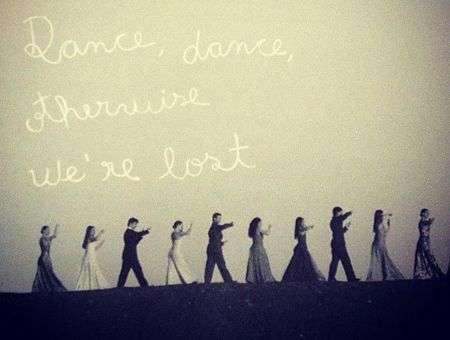 Dance, dance,
otherwise
we're lost